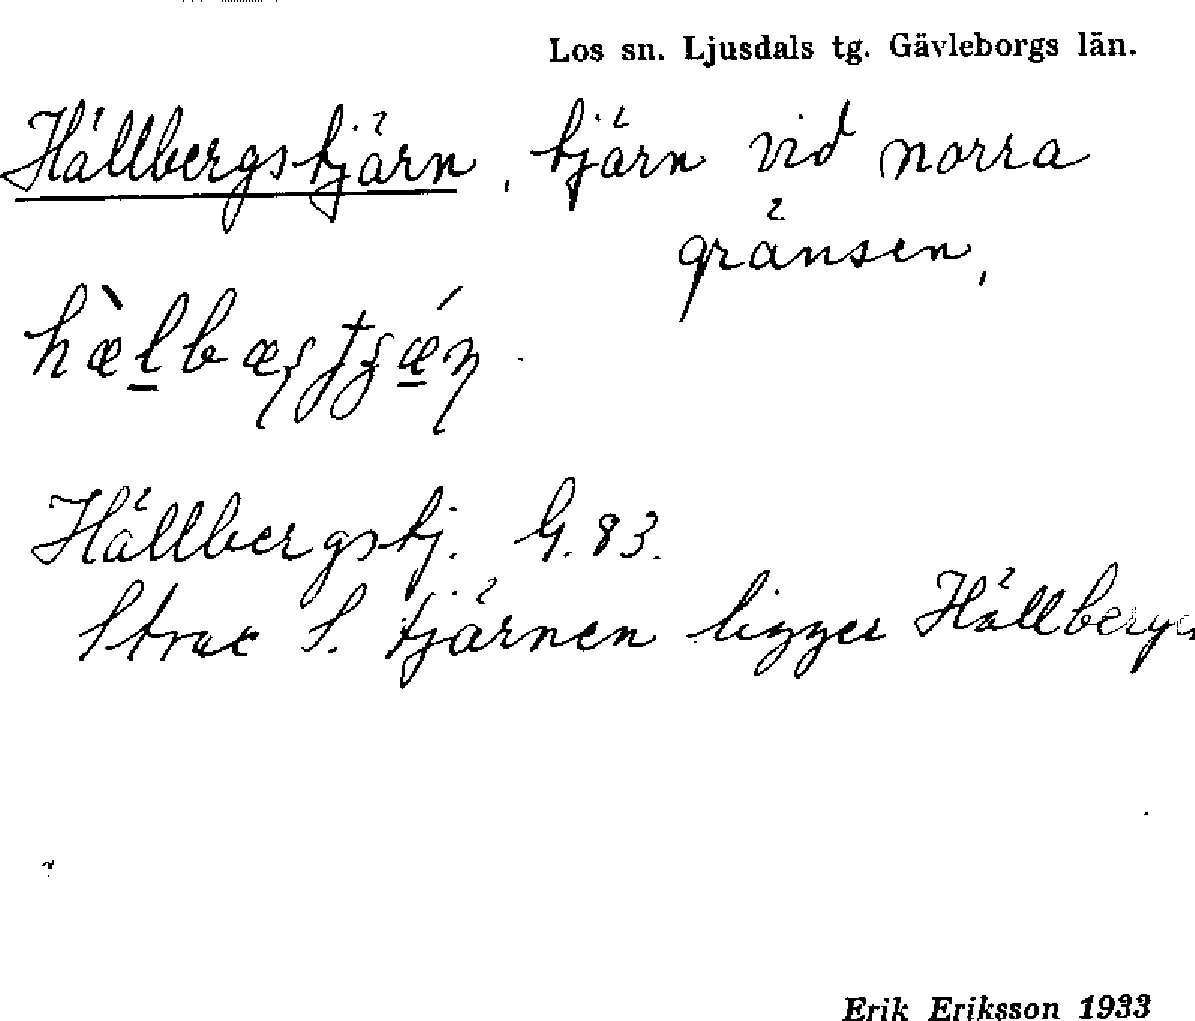 Los sn. Ljusdals tg. Gävleborgs län.
Hällbergstjärn, tjärn vid norra
gränsen.
Hällbergstj. G. 83.
Strax S. tjärnen ligger Hällberget
Erik Eriksson 1933